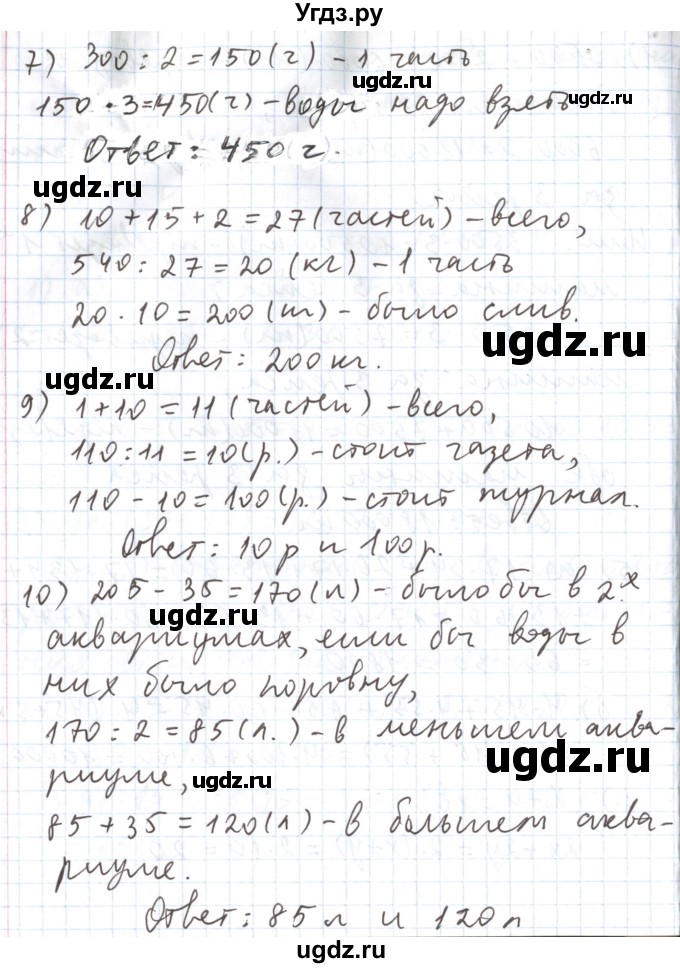 Угдз.ру
7) 300 : 2 = 150 (г) – 1 часть
ugdz.ru
150 · 3 = 450 (г) – воды надо взять
ugdz.ru
Ответ: 450 г.
ugdz.ru
8) 10 + 15 + 2 = 27 (частей) – всего,
540 : 27 = 20 (кг) – 1 часть
20 · 10 = 200 (т) – было слив.
ugdz.ru
Ответ: 200 кг.
ugdz.ru
9) 1 + 10 = 11 (частей) – всего,
110 : 11 = 10 (р.) – стоит газета,
110 – 10 = 100 (р.) – стоит журнал.
Ответ: 10 р и 100 р.
10) 205 – 35 = 170 (л) – было бы в 2х
ugdz.ru
аквариумах, если бы воды в
них было поровну,
170 : 2 = 85 (л.) – в меньшем аква-
риуме,
ugdz.ru
ugdz.ru
85 + 35 = 120 (л) – в большем аква-
риуме.
Ответ: 85 л и 120 л
ugdz.ru